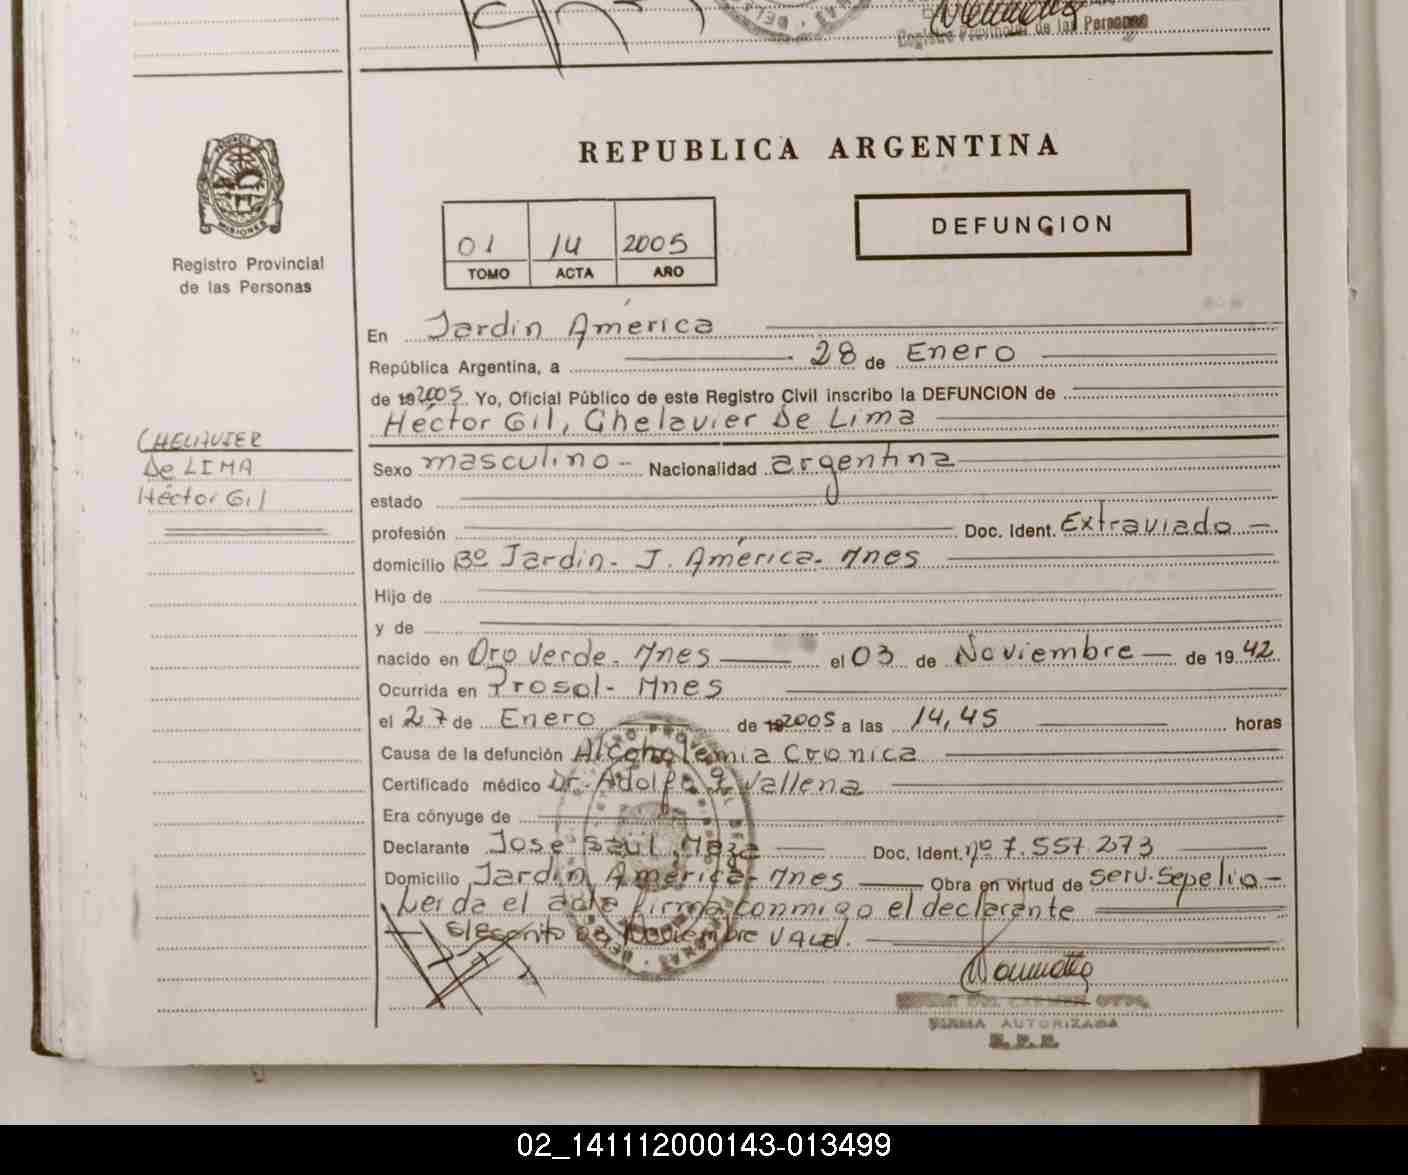 Registro Provincial de las Personas
REPUBLICA ARGENTINA
DEFUNCION
01 14 2005
TOMO ACTA AÑO
PROVINCIA
MISIONES
Registro Provincial
de las Personas
En Jardín América
República Argentina, a 28 de Enero
de 19 2005. Yo, Oficial Público de este Registro Civil inscribo la DEFUNCION de
Héctor Gil, Chelavier De Lima
CHELAVIER
De LIMA
Héctor Gil
Sexo masculino - Nacionalidad argentina
estado
profesión Doc. Ident. Extraviado -
domicilio Bº Jardín - J. América - Mnes
Hijo de
y de
nacido en Oro Verde - Mnes el 03 de Noviembre - de 19 42
Ocurrida en Prosol - Mnes
el 27 de Enero de 19 2005 a las 14,45 horas
Causa de la defunción Alcoholemia Cronica
Certificado médico Dr. Adolfo Vallena
Era cónyuge de
Declarante José Saúl, Doc. Ident. nº 7.557.273
Domicilio Jardín América - Mnes Obra en virtud de Serv. Sepelio -
Leída el acta firma conmigo el declarante
S/escrito 03 Noviembre VALE.
FIRMA AUTORIZADA
R.P.P.
02_141112000143-013499